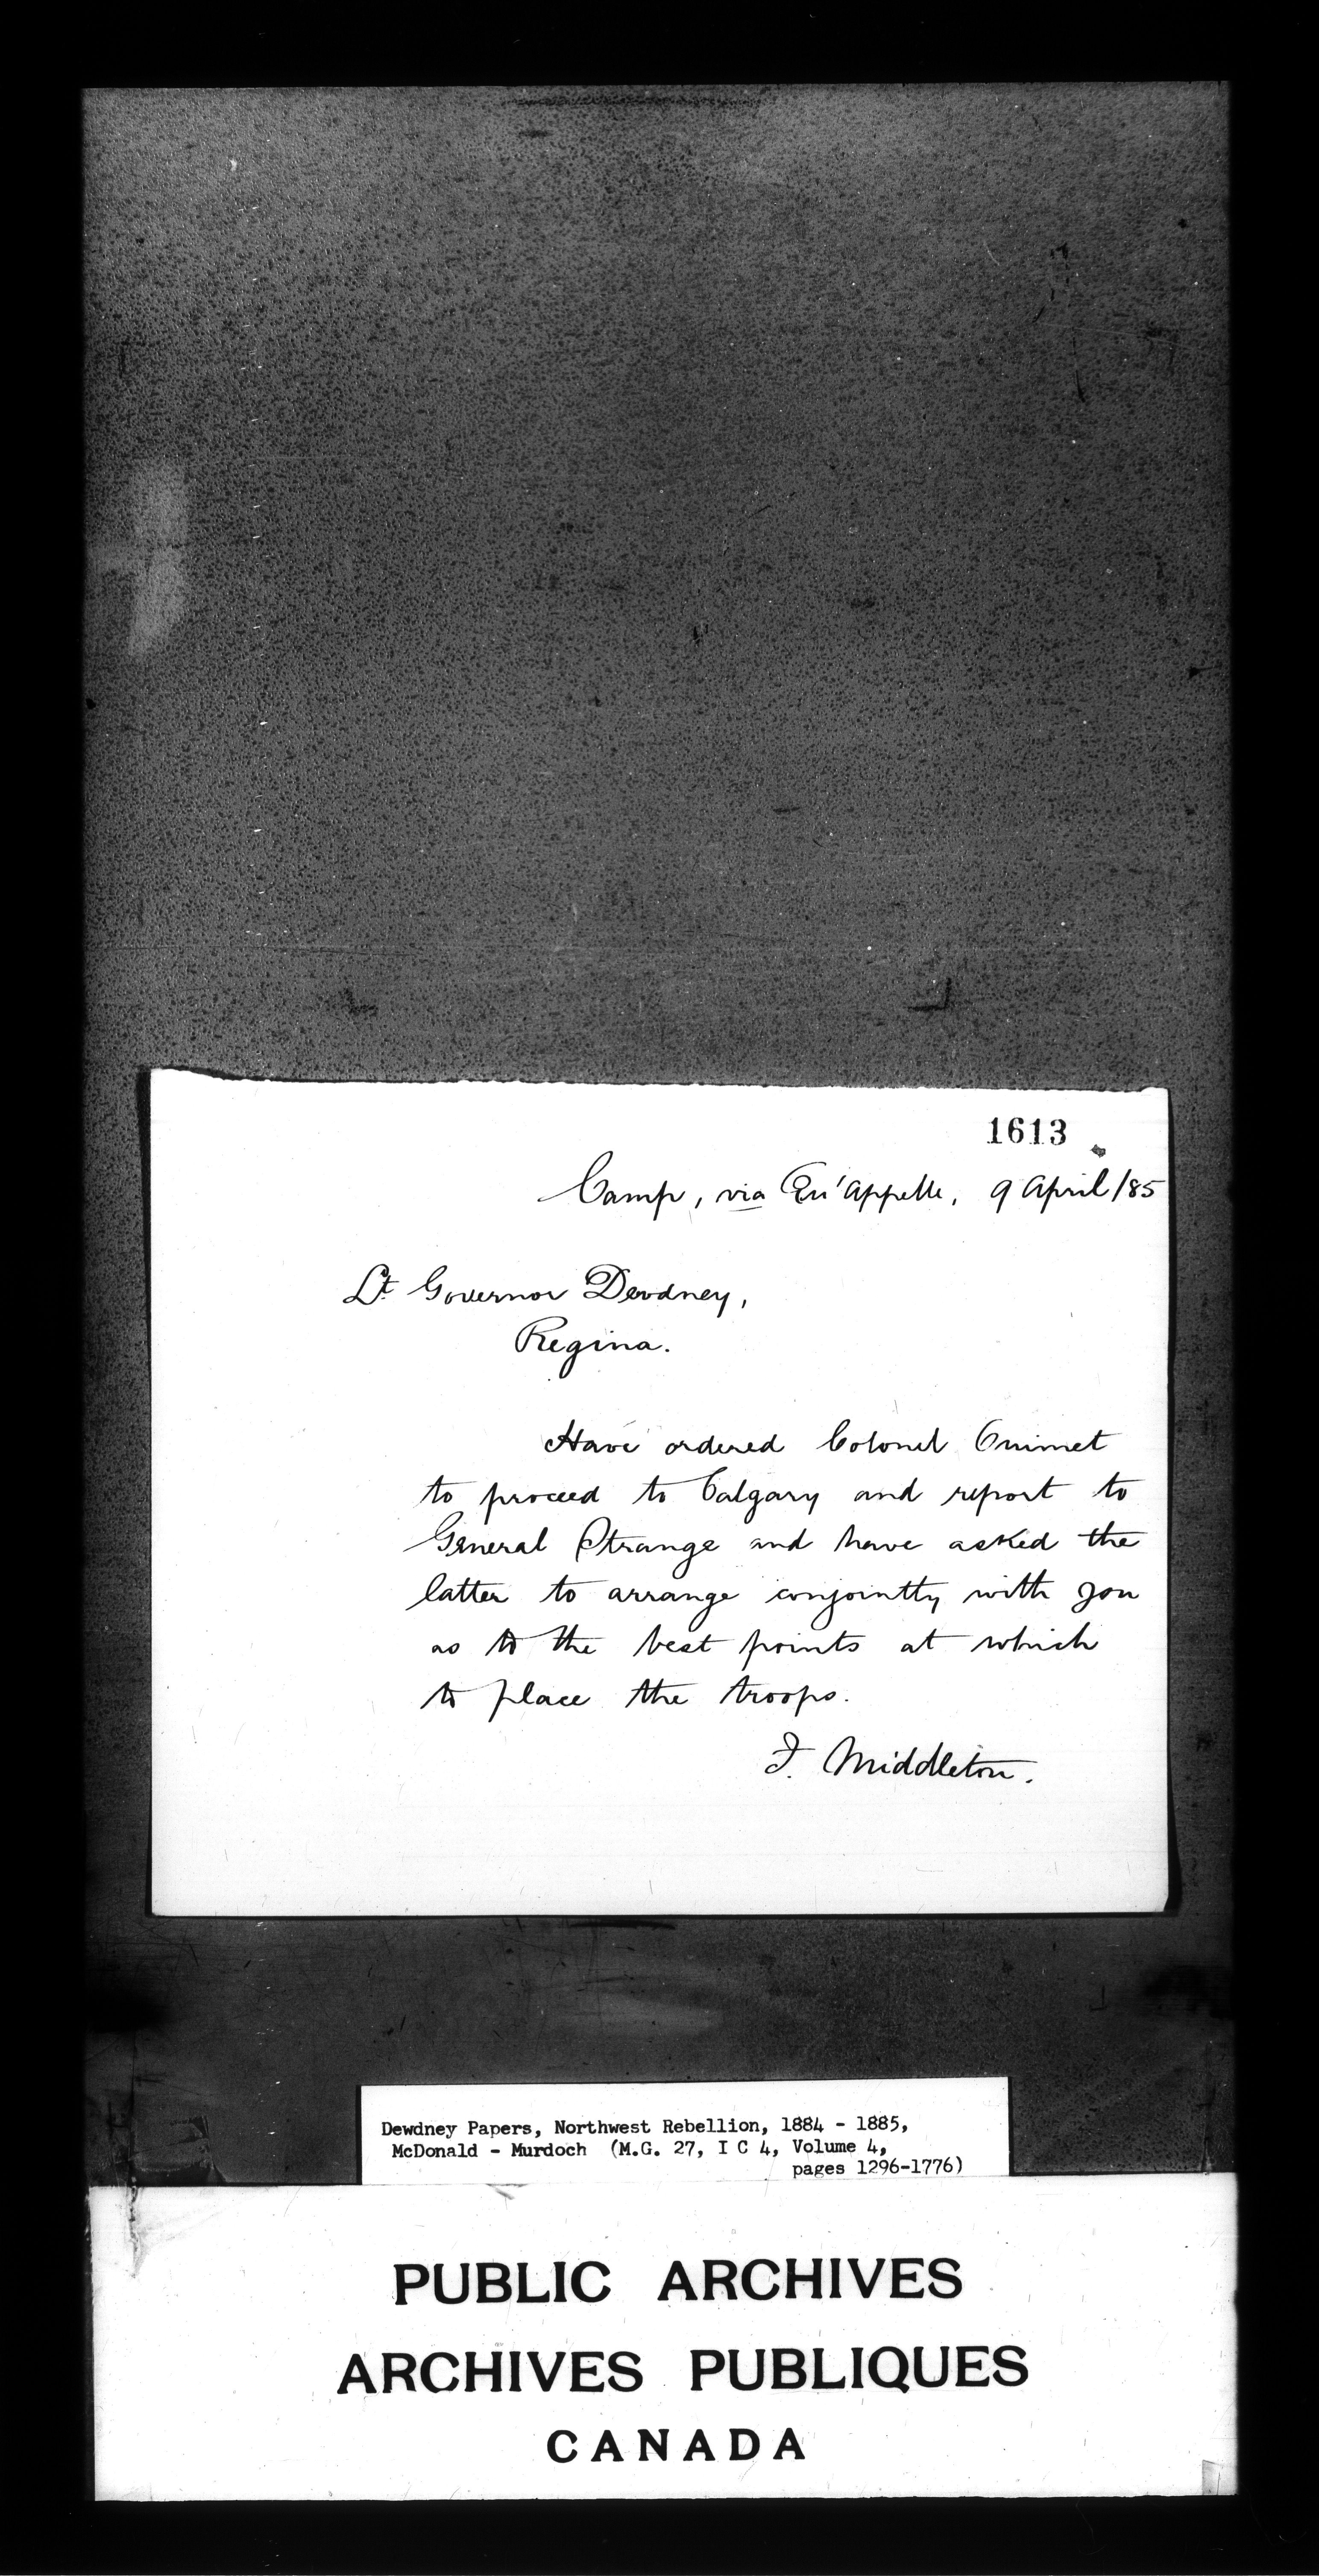 1613
Camp, via Qu'Appelle, 9 April/85
Lt Governor Dewdney,
Regina.
Have ordered Colonel Ouimet
to proceed to Calgary and report to
General Strange and have asked the
latter to arrange conjointly with you
as to the best points at which
to place the troops.
F. Middleton.
Dewdney Papers, Northwest Rebellion, 1884 - 1885,
McDonald - Murdoch (M.G. 27, I C 4, Volume 4,
pages 1296-1776)
PUBLIC ARCHIVES
ARCHIVES PUBLIQUES
CANADA